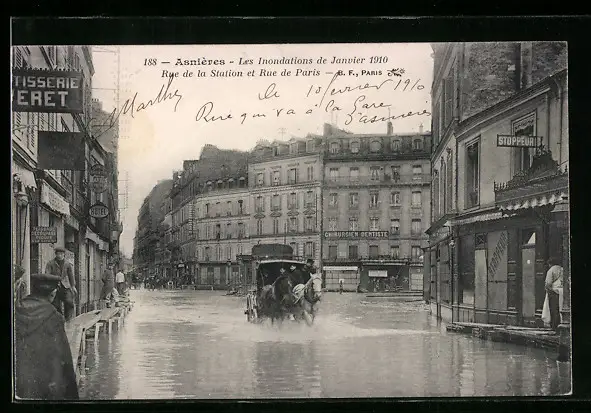 188 - Asnières - Les Inondations de Janvier 1910
Rue de la Station et Rue de Paris - B. F., PARIS
Marthy
le 10 février 1910
Rue qui va à la Gare
d'Asnières
TISSERIE
VERET
STOPPEUR
CHIRURGIEN DENTISTE